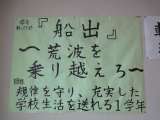 『船出』
～荒波を
乗り越えろ～
規律を守り、充実した
学校生活を送れる1学年